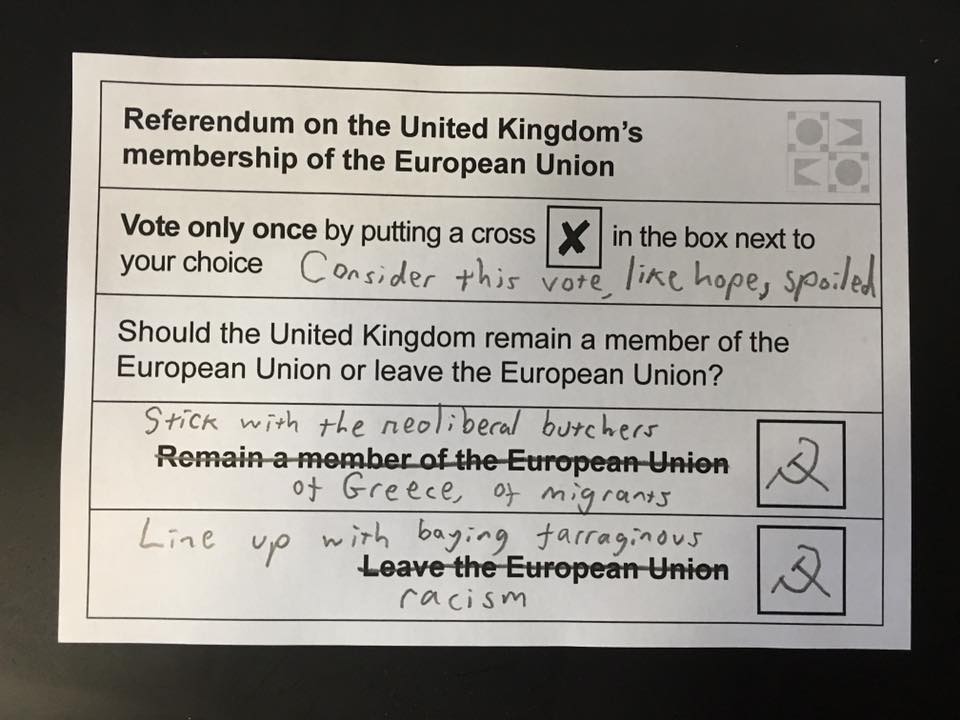 Referendum on the United Kingdom's
membership of the European Union
Vote only once by putting a cross X in the box next to
your choice Consider this vote, like hope, spoiled
Should the United Kingdom remain a member of the
European Union or leave the European Union?
Stick with the neoliberal butchers
Remain a member of the European Union
of Greece, of migrants
Line up with baying farraginous
Leave the European Union
racism